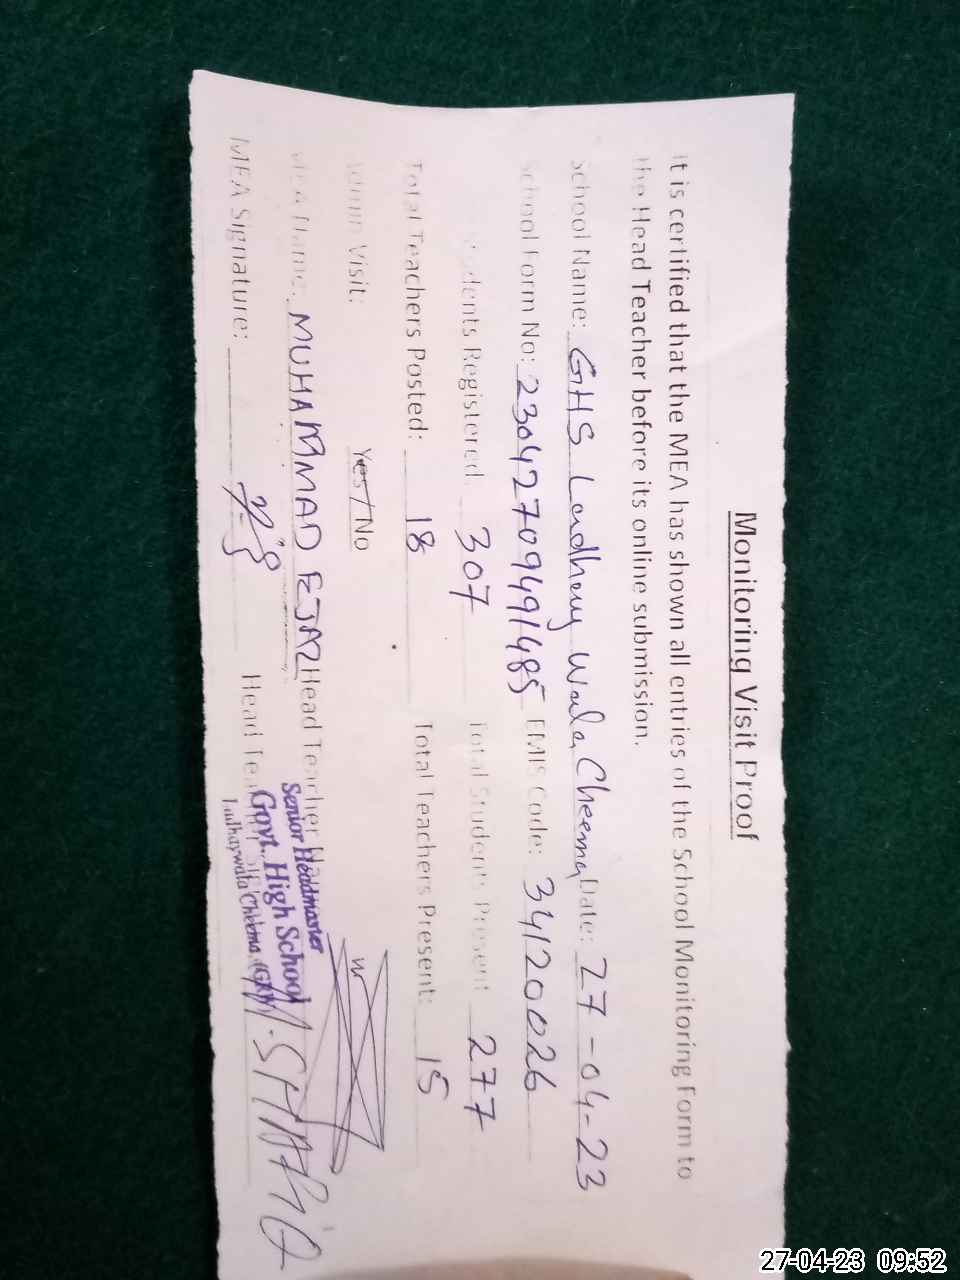 Monitoring Visit Proof
It is certified that the MEA has shown all entries of the School Monitoring Form to
the Head Teacher before its online submission.
School Name: GHS Ladhay Wala Cheema Date: 27-04-23
School Form No: 23042709491485 EMIS Code: 34120026
Students Registered: 307 Total Students Present 277
Total Teachers Posted: 18 Total Teachers Present: 15
Admin Visit: Yes/No
MEA Name: MUHAMMAD EJAZ Head Teacher
MEA Signature: Head
Senior Headmaster
Govt. High School
Ladhaywala Cheema
27-04-23 09:52